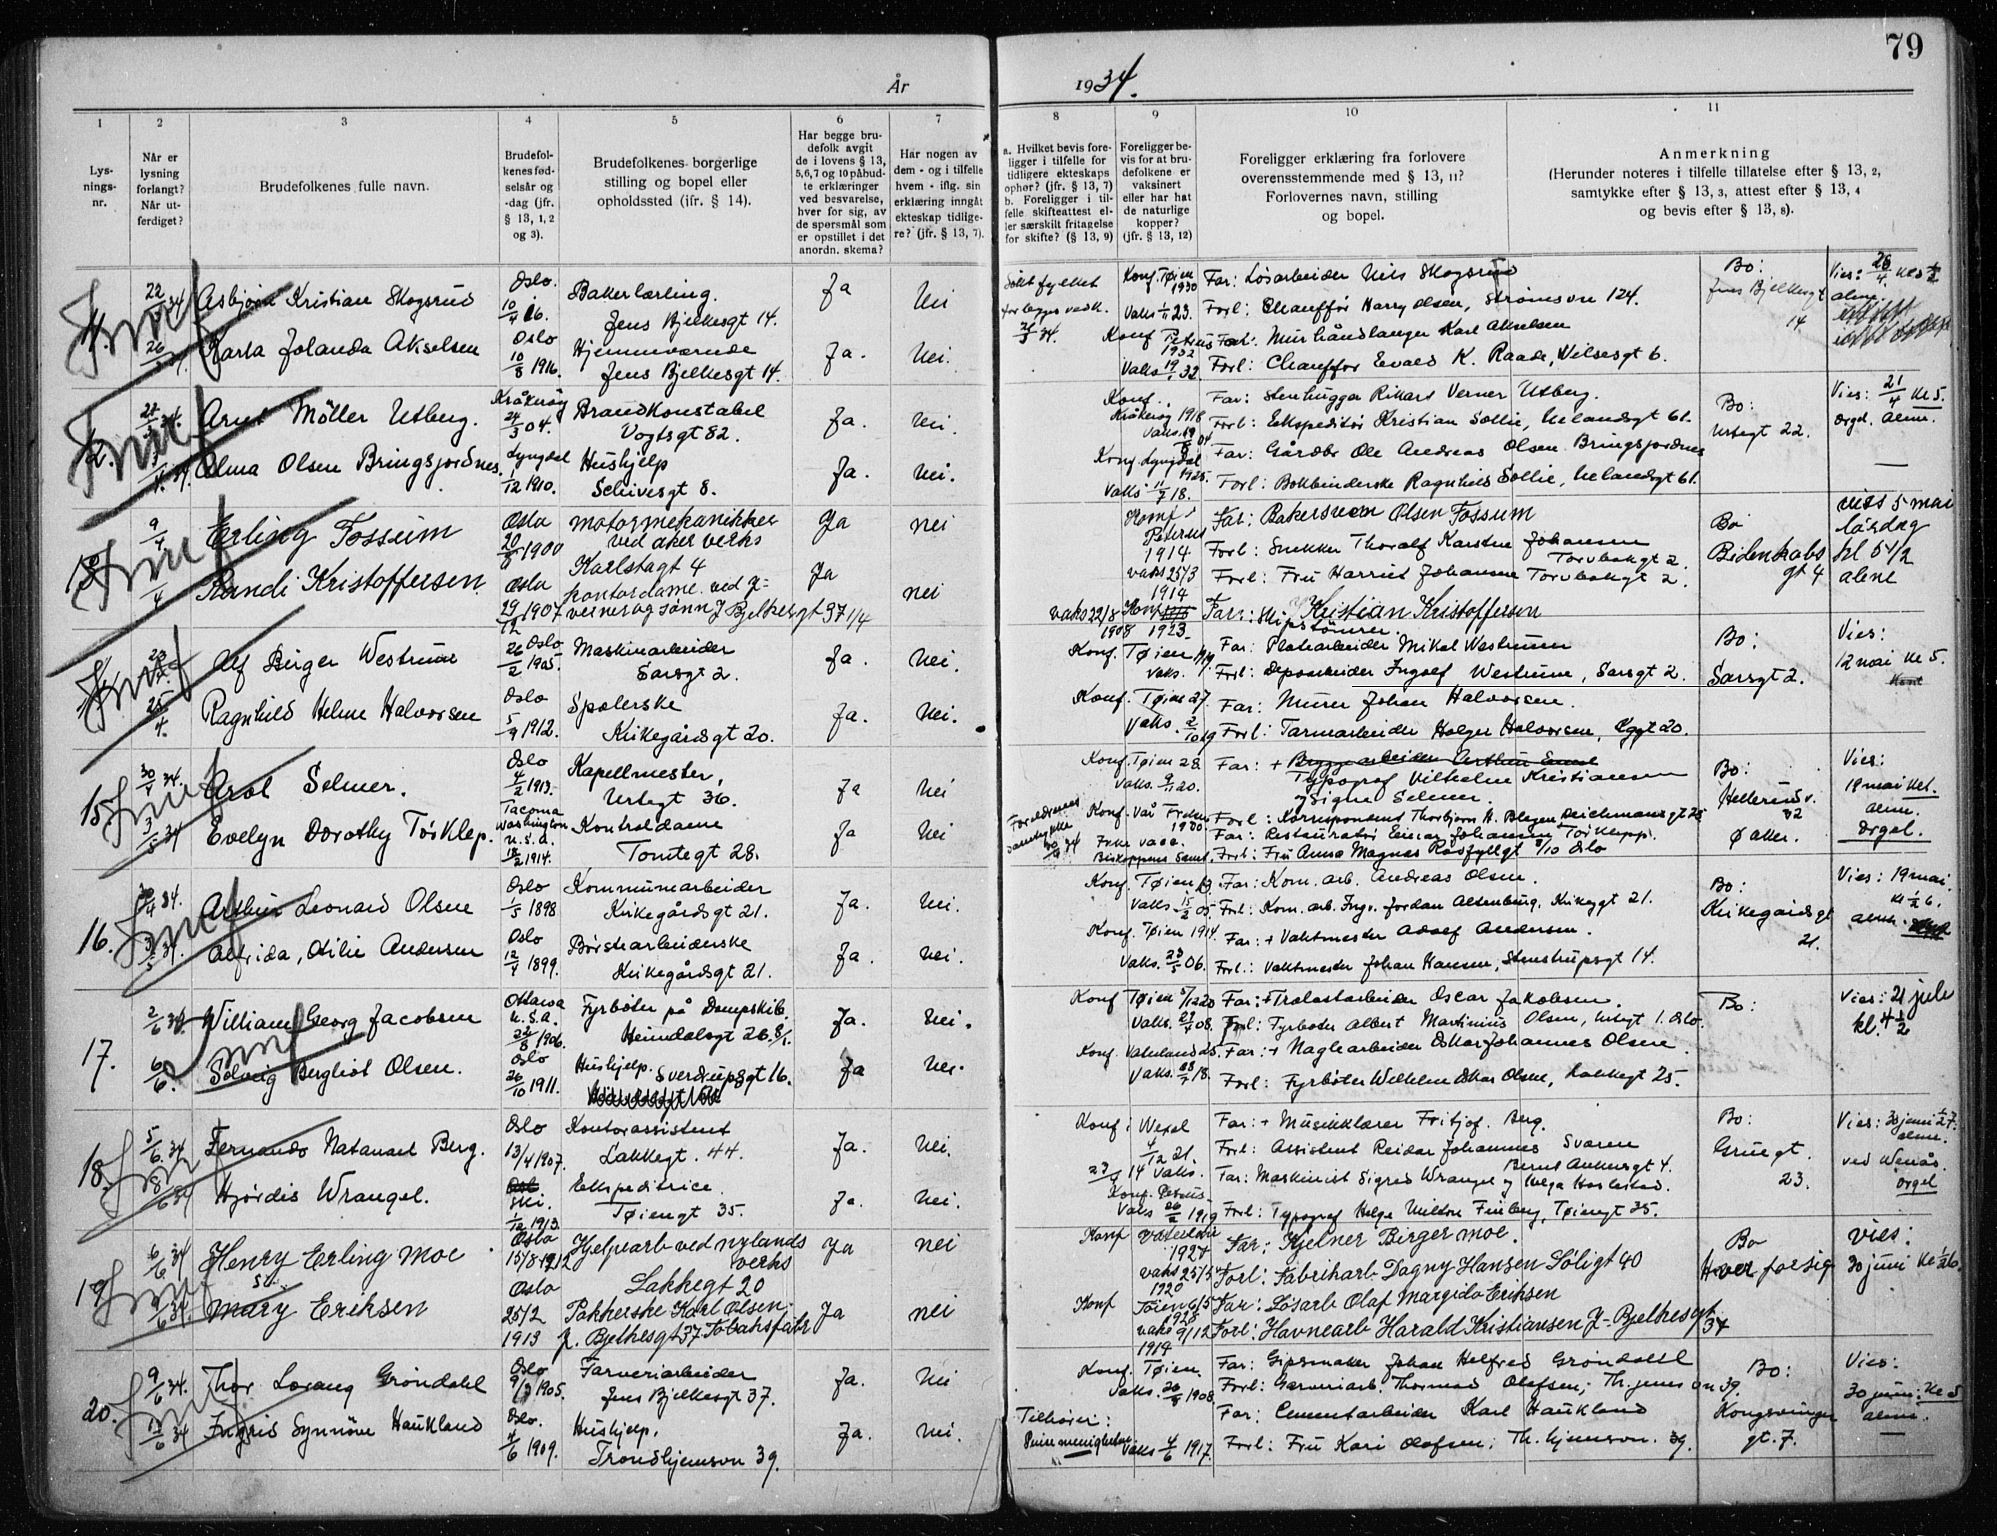 År
1934.
79
1
2
3
4
5
6
7
8
9
10
11
Lys-
nings-
nr.
Når er
lysning
forlangt?
Når ut-
ferdiget?
Brudefolkenes fulle navn.
Brudefol-
kenes fød-
selsår og
-dag (jfr.
§ 13, 1, 2
og 3).
Brudefolkenes borgerlige
stilling og bopel eller
opholdssted (ifr. § 14).
Har begge bru-
defolk avgit
de i lovens § 13,
5,6,7 og 10 påbud-
te erklæringer
ved besvarelse,
hver for sig, av
de spørsmål som
er opstillet i det
anordn. skema?
Har nogen av
dem - og i tilfelle
hvem - iflg. sin
erklæring inngått
ekteskap tidlige-
re? (jfr. § 13, 7).
a. Hvilket bevis fore-
ligger i tilfelle for
tidligere ekteskaps
ophør? (jfr. § 13, 7)
b. Foreligger i til-
felle skifteattest el-
ler særskilt fritagelse
for skifte? (§ 13, 9)
Foreligger be-
vis for at bru-
defolkene er
vaksinert
eller har hat
de naturlige
kopper?
(jfr. § 13, 12)
Foreligger erklæring fra forlovere
overensstemmende med § 13, 11?
Forlovernes navn, stilling
og bopel.
Anmerkning
(Herunder noteres i tilfelle tillatelse efter § 13, 2,
samtykke efter § 13, 3, attest efter § 13, 4
og bevis efter § 13, 8).
22
Asbjørn Kristian Skogsrud
Oslo
10/4 16.
Bakerlærling.
Jens Bjelkesgt 14.
Ja
Nei
Søkt fylket
Konf. Tøien
1930
Vaks 1/11 23.
Far: Løsarbeider Nils Skogsrud
Forl: Chauffør Harry Olsen, Strømsvn 124.
Bo:
Jens Bjelkesgt
14
Karla Jolanda Akselsen
Oslo
10/8 1916.
Hjemmeværende
Jens Bjelkesgt 14.
Ja.
Nei.
Konf Petrus
1932
Vaks 19/1 32.
Far: Murhåndlanger Karl Akselsen
Forl: Chauffør Evald K. Raade, Nilsesgt 6.
Arnt Möller Utberg.
Kråkerøy
24/3 04.
Brandkonstabel
Vogtsgt 82.
Ja.
Nei.
Konf.
Kråkerøy 1918
Far: Stenhugger Rikard Verner Utberg.
Forl: Ekspeditør Kristian Sollie, Uelandsgt 61.
Bo:
Urtegt 22.
Vies: 21/4 Kl 5.
orgel. alm.
Alma Olsen Bringsjordnes.
Lyngdal
1/12 1910.
Hushjelp
Schivesgt 8.
Ja.
Nei.
Konf Lyngdal
1925.
Vaks 11/7 18.
Far: Gårdbr Ole Andreas Olsen Bringsjordnes
Forl: Bokbinderske Ragnhild Sollie, Uelandsgt 61.
9/4
Erling Fossum
Oslo
1900
motormekanikker
ved aker verks
Karlstagt 4
Ja
nei
Konf
Petrus
1914
vaks 25/3
1914
Far: Bakersvenn Olsen Fossum
Forl: Snekker Thoralf Karsten Johansen
Torvbakgt 2.
Forl: Fru Harriet Johansen Torvbakgt 2.
Bo
Bidenkabs
gt 4
viess 5 mai
lørdag
kl 5 1/2
alene
Randi Kristoffersen
Oslo
29/12 1907
kontordame ved J=
verner og sønn J Bjelkesgt 97 1/4
Ja
nei
vaks 22/8
1908
Konf
1923
Far: Skips Kristian Kristoffersen
tømrer.
Alf Birger Westrum
26 Oslo
2 1905.
Maskinarbeider
Sarsgt 2.
Ja.
Nei.
Konf. Tøien
vaks.
Far: Platearbeider Mikal Westrum
Forl: Depotarbeider Ingolf Westrum, Sarsgt 2.
Bo:
Sarsgt 2.
Vies:
12 mai Kl 5.
25/4.
Ragnhild Helene Halvorsen
Oslo
5/9 1912.
Spolerske
Kirkegårdsgt 20.
Ja.
Nei.
Konf. Tøien 27.
Vaks. 2/10 19
Far: Murer Johan Halvorsen.
Forl: Tarmarbeider Holger Halvorsen, Eggt 20.
15.
30/4 34.
Arol Selmer.
Oslo
4/2 1913.
Kapellmester,
Urtegt 36.
Ja
Nei
Konf. Tøien 28.
Vaks. 9/11 20.
Far: + Bryggearbeider Arthur Emil
Typograf Vilhelm Kristiansen
og Signe Selmer.
Forl: Korrespondent Thorbjørn H. Blegen Deichmansgt 25
Bo:
Hellerudv.
32
Ø aker.
Vies:
19 mai Kl.
alm.
Orgel.
3/5 34
Evelyn Dorothy Tørklep.
Tacoma
Washington
U.S.A.
18/2 1914.
Kontroldame
Tomtegt 28.
Ja
Nei
Foreldrenes
samtykke
30/4 34
Konf. Vår Frelser
1930
Biskoppens Samt.
Far: Restauratør Einar Johannes Torklepp.
Forl: Fru Anna Magnas Rosfyllgt 8/10 Oslo
16.
30/4 34.
Arthur Leonard Olsen
Oslo
1/5 1898
Kommunearbeider
Kirkegårdsgt 21.
Ja.
Nei.
Konf. Tøien 13.
Vaks. 15/2 05.
Far: Kom. arb. Andreas Olsen.
Forl: Kom. arb. Ingv. Jordan Altenburg, Kirkegt 21.
Bo:
Kirkegårdsgt
21.
Vies: 19 mai.
Kl 1/2 6.
alm.
3/5 34.
Alfrida, Otilie Andersen
Oslo
12/4 1899.
Børstearbeiderske
Kirkegårdsgt 21.
Ja.
Nei.
Konf. Tøien 1914.
Vaks. 23/5 06.
Far: + Vaktmester Adolf Andersen.
Forl.: Vaktmester Johan Hansen, Stenstrupsgt 14.
17.
2/6 34.
William Georg Jacobsen
Ottawa
U.S.A.
22/8 1906.
Fyrbøter på Dampskib.
Heimdalsgt 26.
Ja.
Nei.
Konf Tøien 5/12 20
Vaks. 08.
Far: + Trælastarbeider Oscar Jakobsen.
Forl: Fyrbøter Albert Martinius Olsen, Urtegt 1. Oslo.
Bo:
Vies: 21 juli
kl. 4 1/2
6/6.
Solveig Bergliot Olsen.
Oslo
26/10 1911.
Hushjelp.
Sverdrupsgt 16.
Ja
Nei.
Konf. Vaterland 25.
Vaks. 18.
Far: + Naglearbeider Oskar Johannes Olsen.
Forl: Fyrbøter Wilhelm Oskar Olsen, Lakkegt 25.
18.
5/6 34
Fernando Natanael Berg.
Oslo
13/4 1907.
Kontorassistent
Lakkegt. 44.
Ja.
Nei.
Konf: Wexel
4/12 21.
14 Vaks.
Far: + Musikklærer Fritjof. Berg.
Forl: Assistent Reidar Johannes Svaren
Bernt Ankersgt 4.
Bo:
Gruegt.
23.
Vies: 30 juni
alm.
ved Wenås.
orgel
8/6 34
Hjørdis Wrangel.
Ski.
1/12 1913.
Ekspeditrice.
Tøiengt 35.
Ja.
Nei.
Konf. Petrus
Vaks 26/2 1919
Far: Maskinist Sigurd Wrangel og Helga Harlestad.
Forl: Typograf Helge Milton Finberg, Tøiengt 35.
19
6/6 34
Henry Erling Moe
Oslo
15/8 1912
Hjelpearb ved nylands
verks
Lakkegt 20
Ja
nei
Konf Vaterland
1927
vaks 25/5
1920
Far: Kjelner Birger moe.
Forl: Fabrikarb Dagny Hansen Søligt 40
Bo
Hver for sig
Vies:
30 juni Kl 1/2 6.
mary Eriksen
Oslo
25/2
1913
Pakkerske Karl Olsen,
J. Bjelkesgt 37 Tobaksfabr
Ja
nei
Konf Tøien 6/5
1928
vaks 9/12
1914
Far: Løsarb Olaf Margido Eriksen
Forl: Havnearb Harald Kristiansen J-Bjelkesgt
37
20.
9/6 34.
Thor Lorang Grøndahl
Oslo
9/3 1905.
Farveriarbeider
Jens Bjelkesgt 37.
Ja.
Nei
Konf. Tøien
Vaks. 1908.
Far: Gipsmaker Johan Helfred Grøndahl
Forl: Garveriarb. Thormod Olafsen; Th.jems vn 39.
Bo:
Kongsvinger
gt. 7.
Vies:
30 juni: Kl 5
alm.
Ingrid Synnøve Haukland
Oslo.
4/6 1909.
Hushjelp.
Trondhjemsvn 39.
Ja.
Nei.
Tilhører:
Pinsemenigheten
Vaks 4/6 1917.
Far: Cementarbeider Karl Haukland
Forl: Fru Kari Olafsen; Th. hjemsvn. 39.